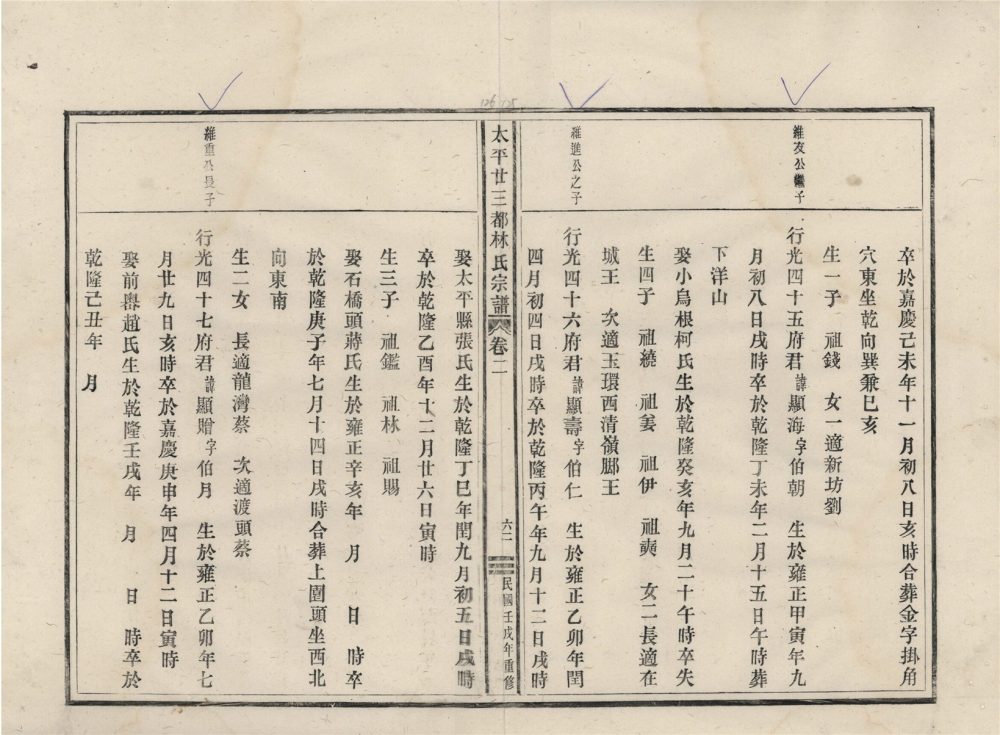 卒於嘉慶己未年十一月初八日亥時合葬金字掛角
穴東坐乾向巽兼巳亥
生一子　祖錢　女一適新坊劉
維友公繼子
行光四十五府君諱顯海字伯朝　生於雍正甲寅年九
月初八日戌時卒於乾隆丁未年二月十五日午時葬
下洋山
娶小烏根柯氏生於乾隆癸亥年九月二十午時卒失
生四子　祖繞　祖姜　祖伊　祖奭　女二長適在
城王　次適玉環西清嶺腳王
維進公之子
行光四十六府君諱顯壽字伯仁　生於雍正乙卯年閏
四月初四日戌時卒於乾隆丙午年九月十二日戌時
太平廿三都林氏宗譜　卷二　六二　民國壬戌年重修
126 125
娶太平縣張氏生於乾隆丁巳年閏九月初五日戌時
卒於乾隆乙酉年十二月廿六日寅時
生三子　祖鑑　祖林　祖賜
娶石橋頭蔣氏生於雍正辛亥年　月　日　時卒
於乾隆庚子年七月十四日戌時合葬上園頭坐西北
向東南
生二女　長適龍灣蔡　次適渡頭蔡
維重公長子
行光四十七府君諱顯贈字伯月　生於雍正乙卯年七
月廿九日亥時卒於嘉慶庚申年四月十二日寅時
娶前嶴趙氏生於乾隆壬戌年　月　日　時卒於
乾隆己丑年　月